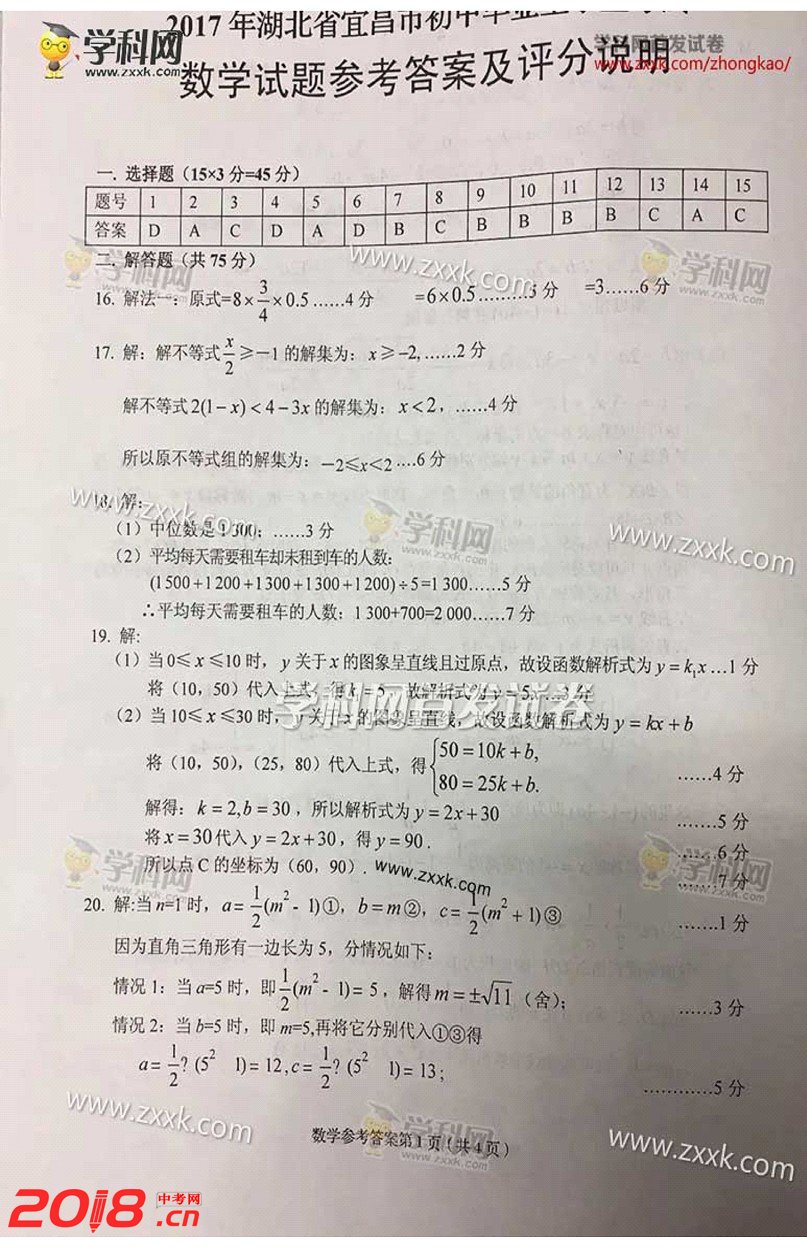 学科网
www.zxxk.com
2017年湖北省宜昌市初中毕业
学科网首发试卷
www.zxxk.com/zhongkao/
数学试题参考答案及评分说明
一. 选择题（15×3分=45分）
题号 1 2 3 4 5 6 7 8 9 10 11 12 13 14 15
答案 D A C D A D B C B B B B C A C
二. 解答题（共75分）
www.zxxk.com
学科网
zxxk.com
16. 解法一：原式=8×3/4×0.5……4分 =6×0.5………5分 =3……6分
17. 解：解不等式x/2≥-1的解集为：x≥-2,……2分
解不等式2(1-x)<4-3x的解集为：x<2，……4分
所以原不等式组的解集为：-2≤x<2….6分
www.zxxk.com
18. 解：
（1）中位数是1300；……3分
学科网
zxxk.com
www.zxxk.com
（2）平均每天需要租车却未租到车的人数：
(1500+1200+1300+1300+1200)÷5=1300……5分
∴平均每天需要租车的人数：1300+700=2000……7分
19. 解:
（1）当0≤x≤10时，y关于x的图象呈直线且过原点，故设函数解析式为y=k₁x…1分
将（10，50）代入上式，得k₁=5，故解析式为y=5x……3分
学科网首发试卷
（2）当10≤x≤30时，y关于x的图象呈直线，故设函数解析式为y=kx+b
将（10，50），（25，80）代入上式，得{50=10k+b,
80=25k+b. ……4分
解得：k=2,b=30，所以解析式为y=2x+30 ……5分
将x=30代入y=2x+30，得y=90. ……6分
所以点C的坐标为（60，90）. ……7分
学科网
zxxk.com
www.zxxk.com
学科网
zxxk.com
20. 解:当n=1时，a=1/2(m²-1)①，b=m②，c=1/2(m²+1)③ ……1分
因为直角三角形有一边长为5，分情况如下：
情况1：当a=5时，即1/2(m²-1)=5，解得m=±√11（舍）； ……3分
情况2：当b=5时，即m=5,再将它分别代入①③得
a=1/2?(5² 1)=12,c=1/2?(5² 1)=13; …………5分
www.zxxk.com
学科网
zxxk.com
www.zxxk.com
数学参考答案第1页（共4页）
2018中考网.cn